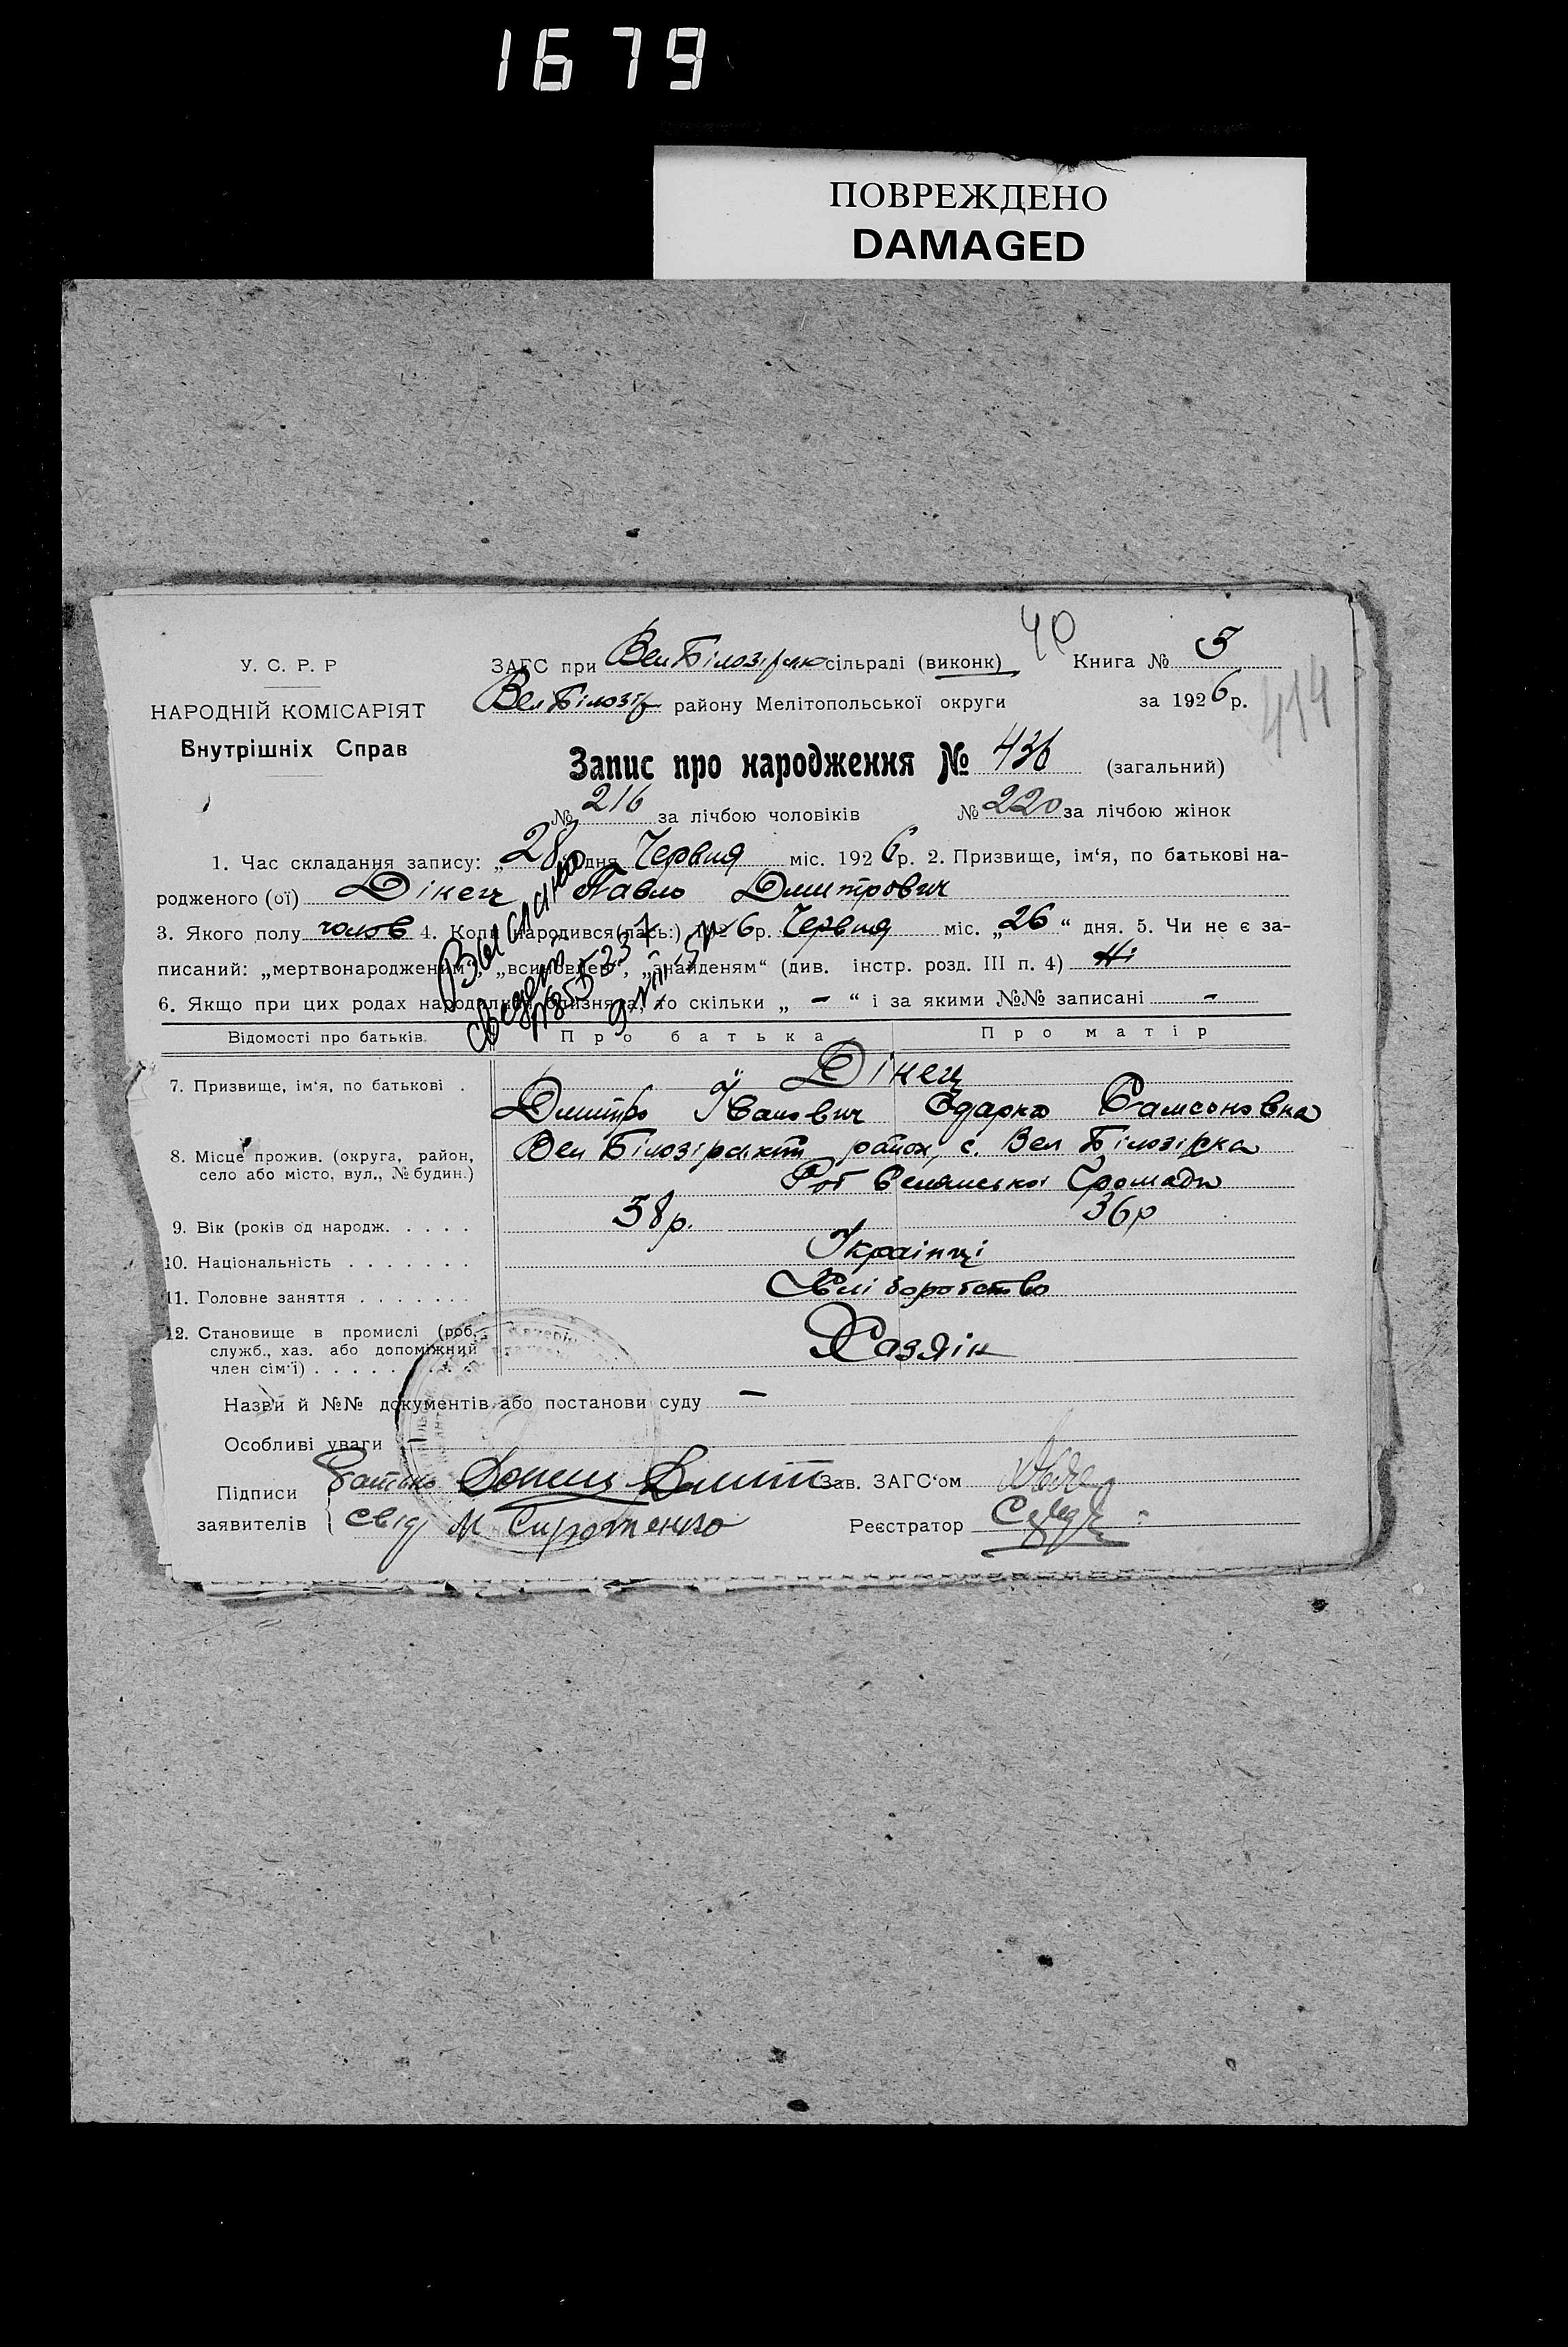 1679
ПОВРЕЖДЕНО
DAMAGED
40
У. С. Р. Р
ЗАГС при Вел Білозірською сільраді (виконк)
Книга № 5
НАРОДНІЙ КОМІСАРІЯТ
Вел Білозір району Мелітопольської округи
за 1926 р.
414
Внутрішніх Справ
Запис про народження № 436 (загальний)
№ 216 за лічбою чоловіків № 220 за лічбою жінок
1. Час складання запису: „28" дня Червня міс. 1926 р. 2. Призвище, ім'я, по батькові на-
родженого (ої) Дікец Павло Дмитрович
3. Якого полу чолов 4. Коли народився(лась:) 1926 р. Червня міс. „26" дня. 5. Чи не є за-
писаний: „мертвонародженим", „всиновлен", „знайденям" (див. інстр. розд. III п. 4) Ні
6. Якщо при цих родах народились близнята, то скільки „ - " і за якими №№ записані -
Выслано
Свідет
Відомості про батьків. Про батька Про матір
7. Призвище, ім'я, по батькові . Дікец
Дмитро Іванович Одарка Самсоновна
8. Місце прожив. (округа, район, село або місто, вул., № будин.) Вел Білозірський район, с. Вел Білозірка
Рог Селянської Громади
9. Вік (років од народж. . . . . 38 р. 36 р
10. Національність . . . . . . . Українці
11. Головне заняття . . . . . . . Хліборобство
12. Становище в промислі (роб., служб., хаз. або допоміжний член сім'ї) . . . . . . . . . Хазяін
Назви й №№ документів або постанови суду —
Особливі уваги —
Підписи заявителів { батько Донец Дмит
Зав. ЗАГС'ом
свід М Сиротенко
Реєстратор